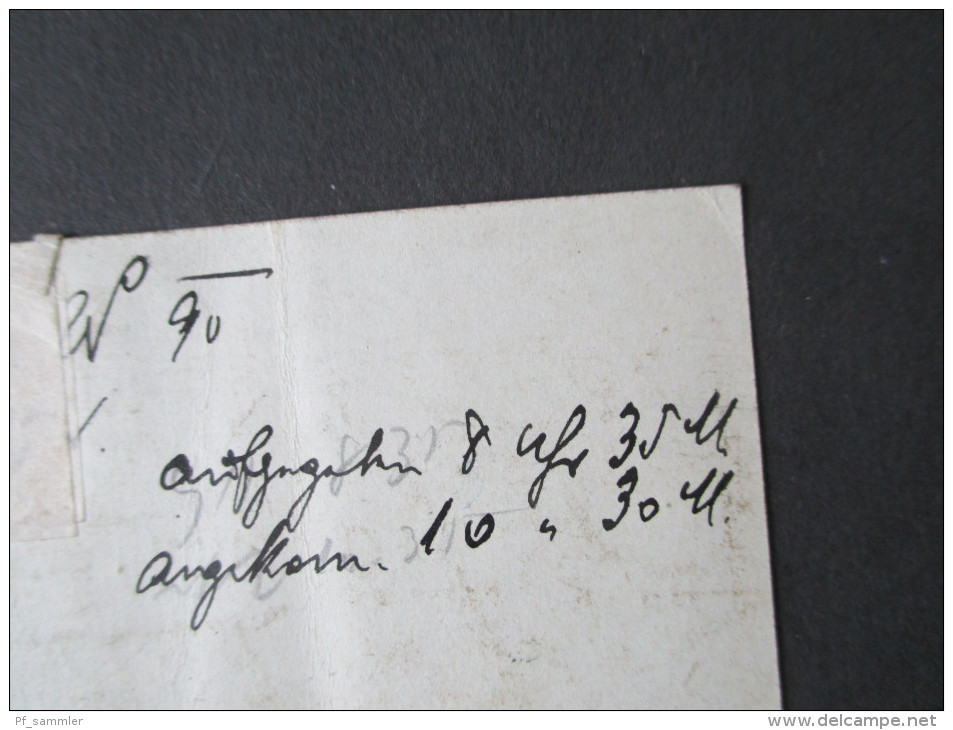 90
aufgegeben 8 Uhr 35 M.
angekom. 10 " 30 M.
Pf_sammler
www.delcampe.net